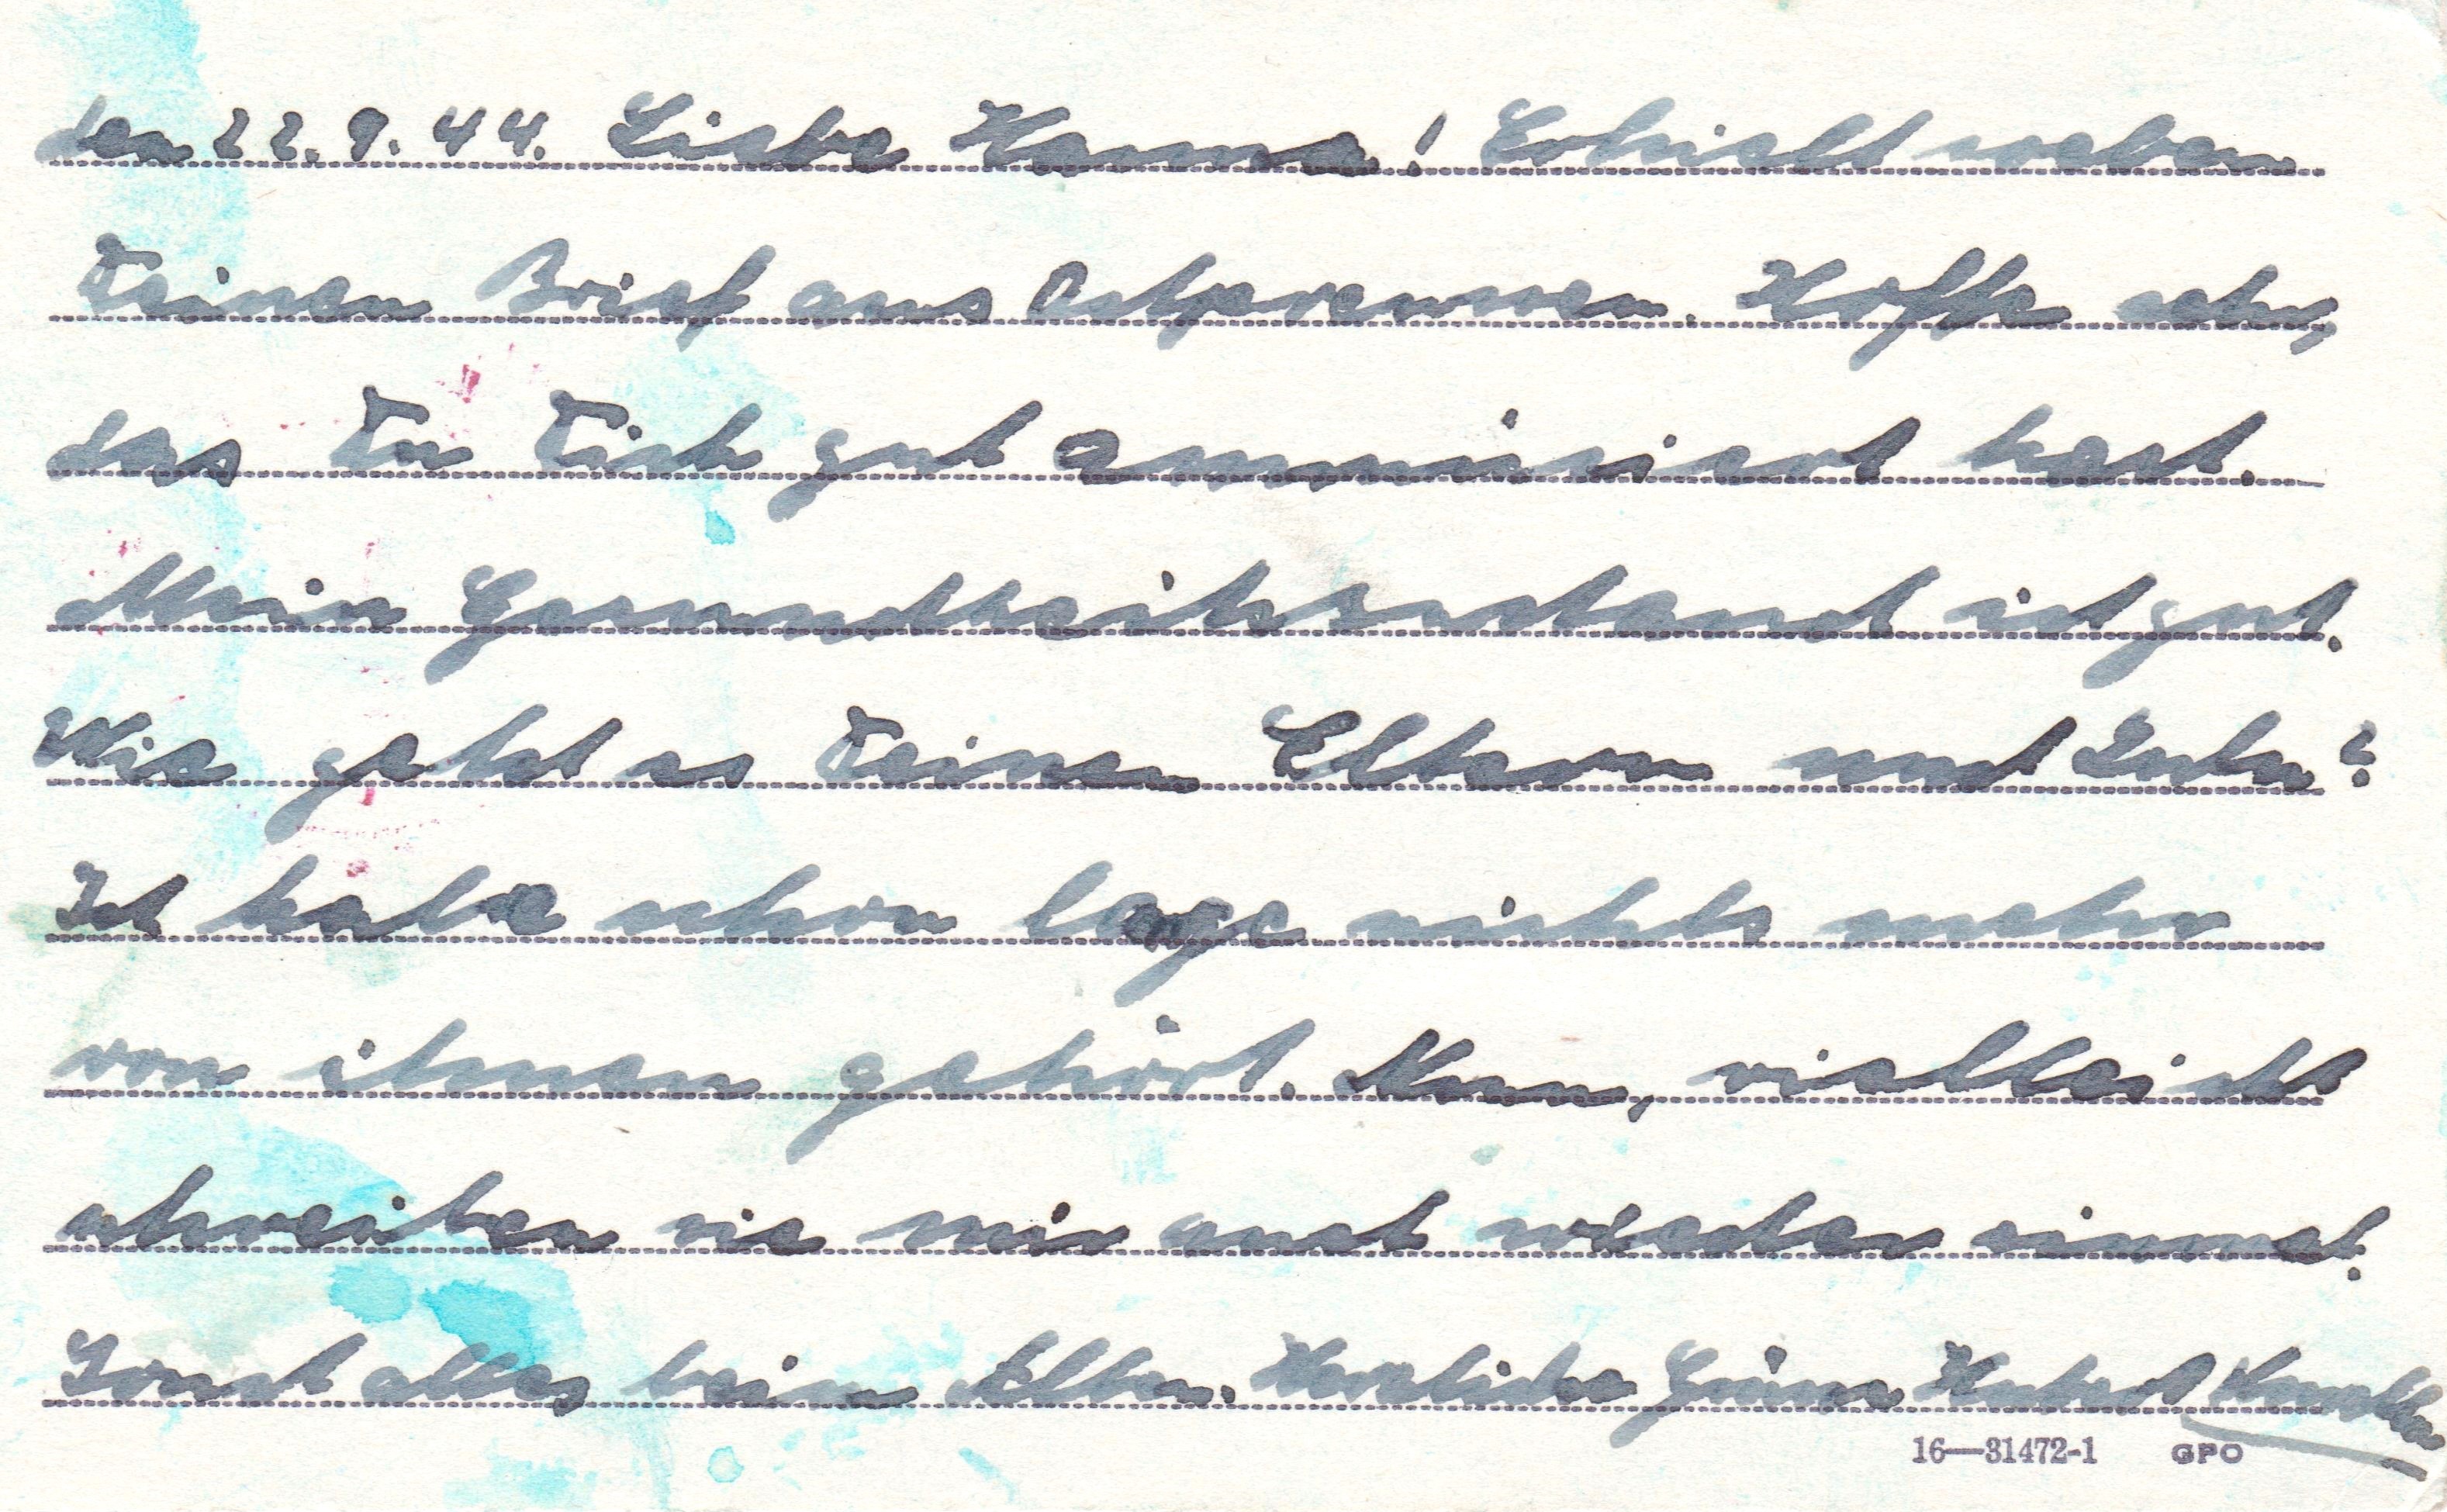 den 22.9.44. Liebe Hanna! Erhielt soeben
Deinen Brief aus Ostpreussen. Hoffe sehr,
das Du Dich gut ammüsiert hast.
Mein Gesundheitszustand ist gut.
Wie geht es Deinen Eltern und
Ich habe schon lage nichts mehr
von ihnen gehört. Nun, vielleicht
schreiben sie mir auch wieder einmal.
Sonst alles beim Alten. Herzliche Grüsse Hubert
16—31472-1 GPO